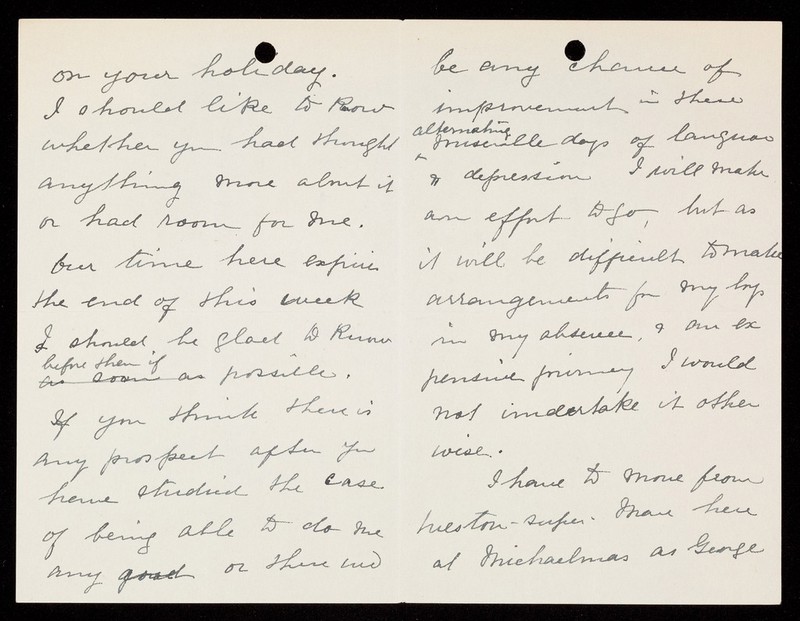 on your holiday.
I should like to know
whether you had thought
anything more about it
or had room for me.
Our time here expires
the end of this week
I should be glad to know
before then if
as soon as possible.
If you think there is
any prospect after you
have studied the case
of being able to do me
any good or there wd
be any chance of
improvement in these
alternating
miserable days of languor
& depression I will make
an effort to go, but as
it will be difficult to make
arrangements for my boys
in my absence, & an ex
pensive journey I would
not undertake it other
wise.
I have to move from
Weston-super-Mare here
at Michaelmas as George